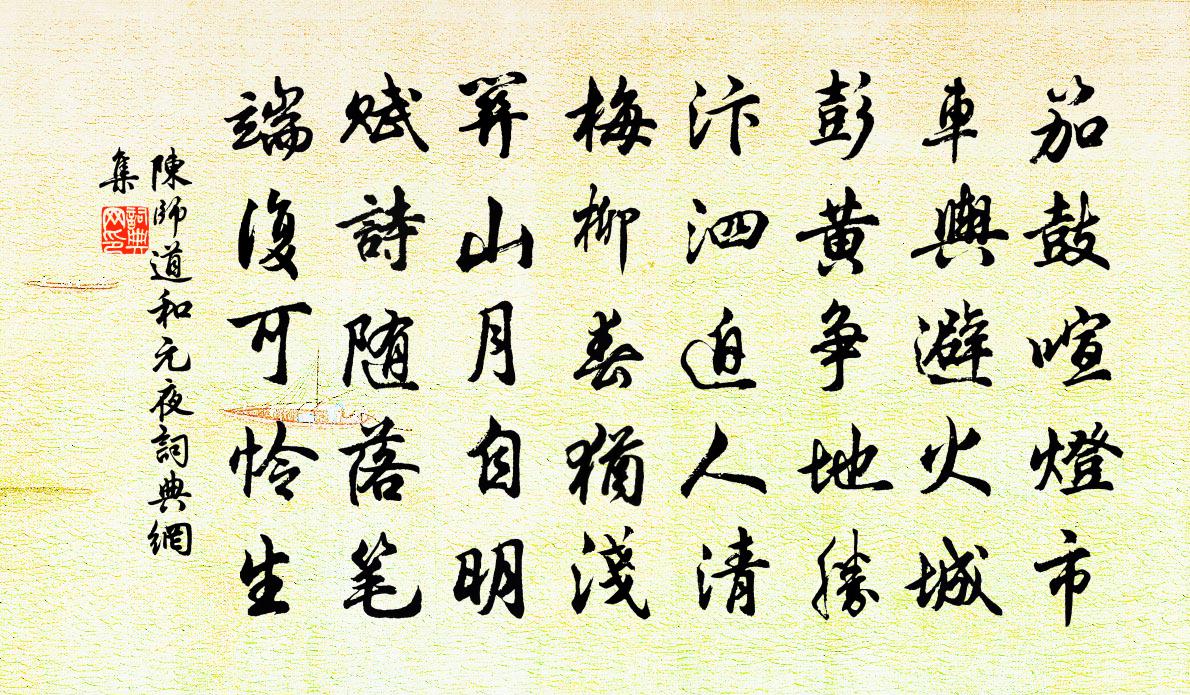 笳鼓喧燈市
車輿避火城
彭黃争地勝
汴泗迫人清
梅柳春猶淺
關山月自明
賦詩随落笔
端復可怜生
陳師道和元夜詞典網
集
詞典
网印